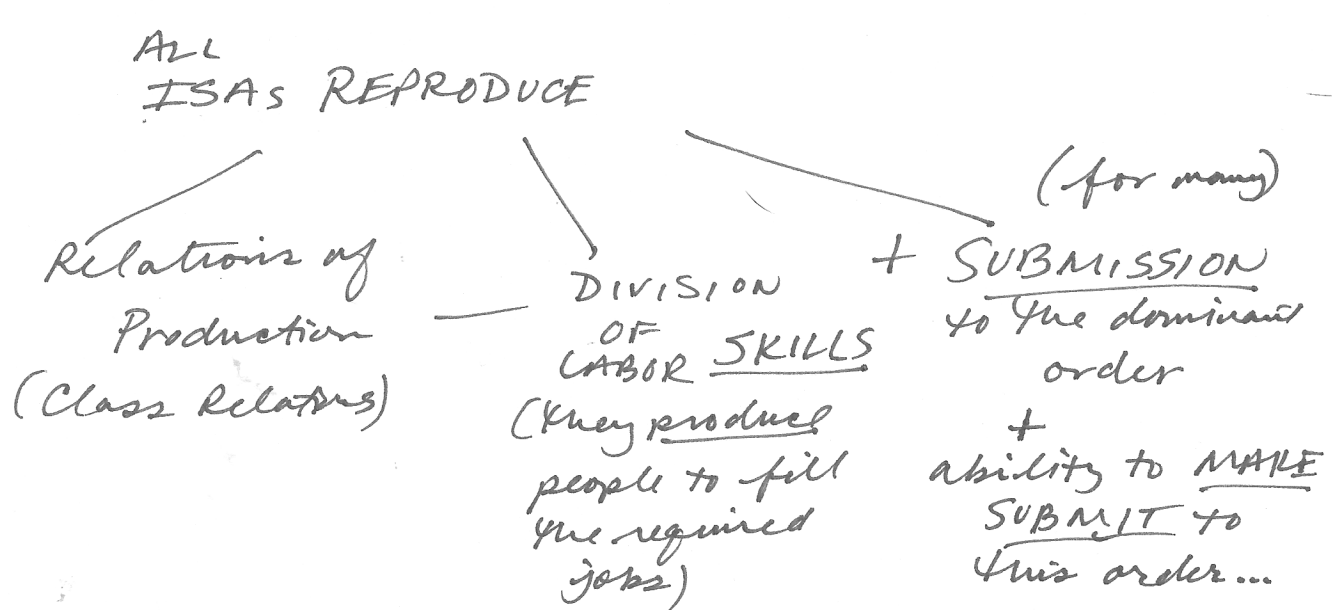 ALL
ISAs REPRODUCE
Relations of
Production
(Class Relations)
DIVISION
OF
LABOR SKILLS
(they produce
people to fill
the required
jobs)
(for many)
+ SUBMISSION
to the dominant
order
+
ability to MAKE
SUBMIT to
this order...